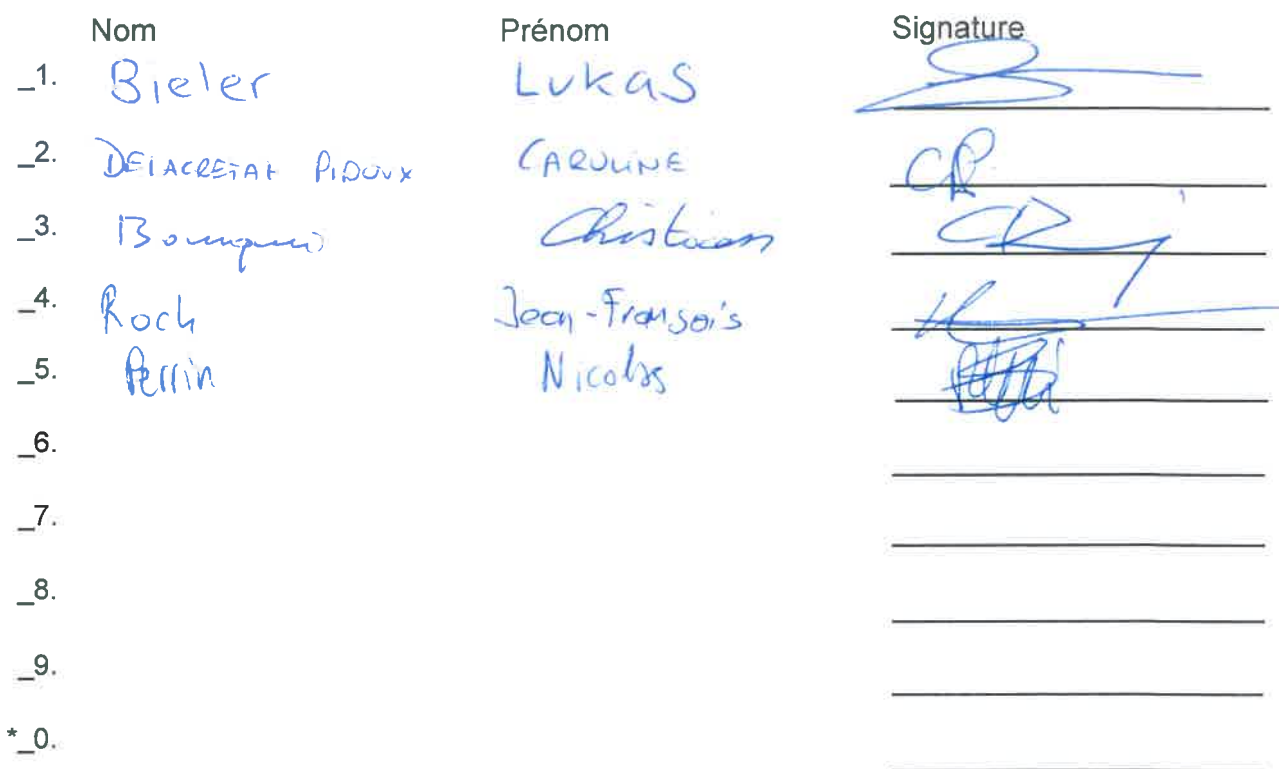 Nom Prénom Signature
_1. Bieler Lukas
_2. DELACRETAZ PIDOUX CAROLINE
_3. Bourquin Christian
_4. Roch Jean-François
_5. Perrin Nicolas
_6.
_7.
_8.
_9.
*_0.